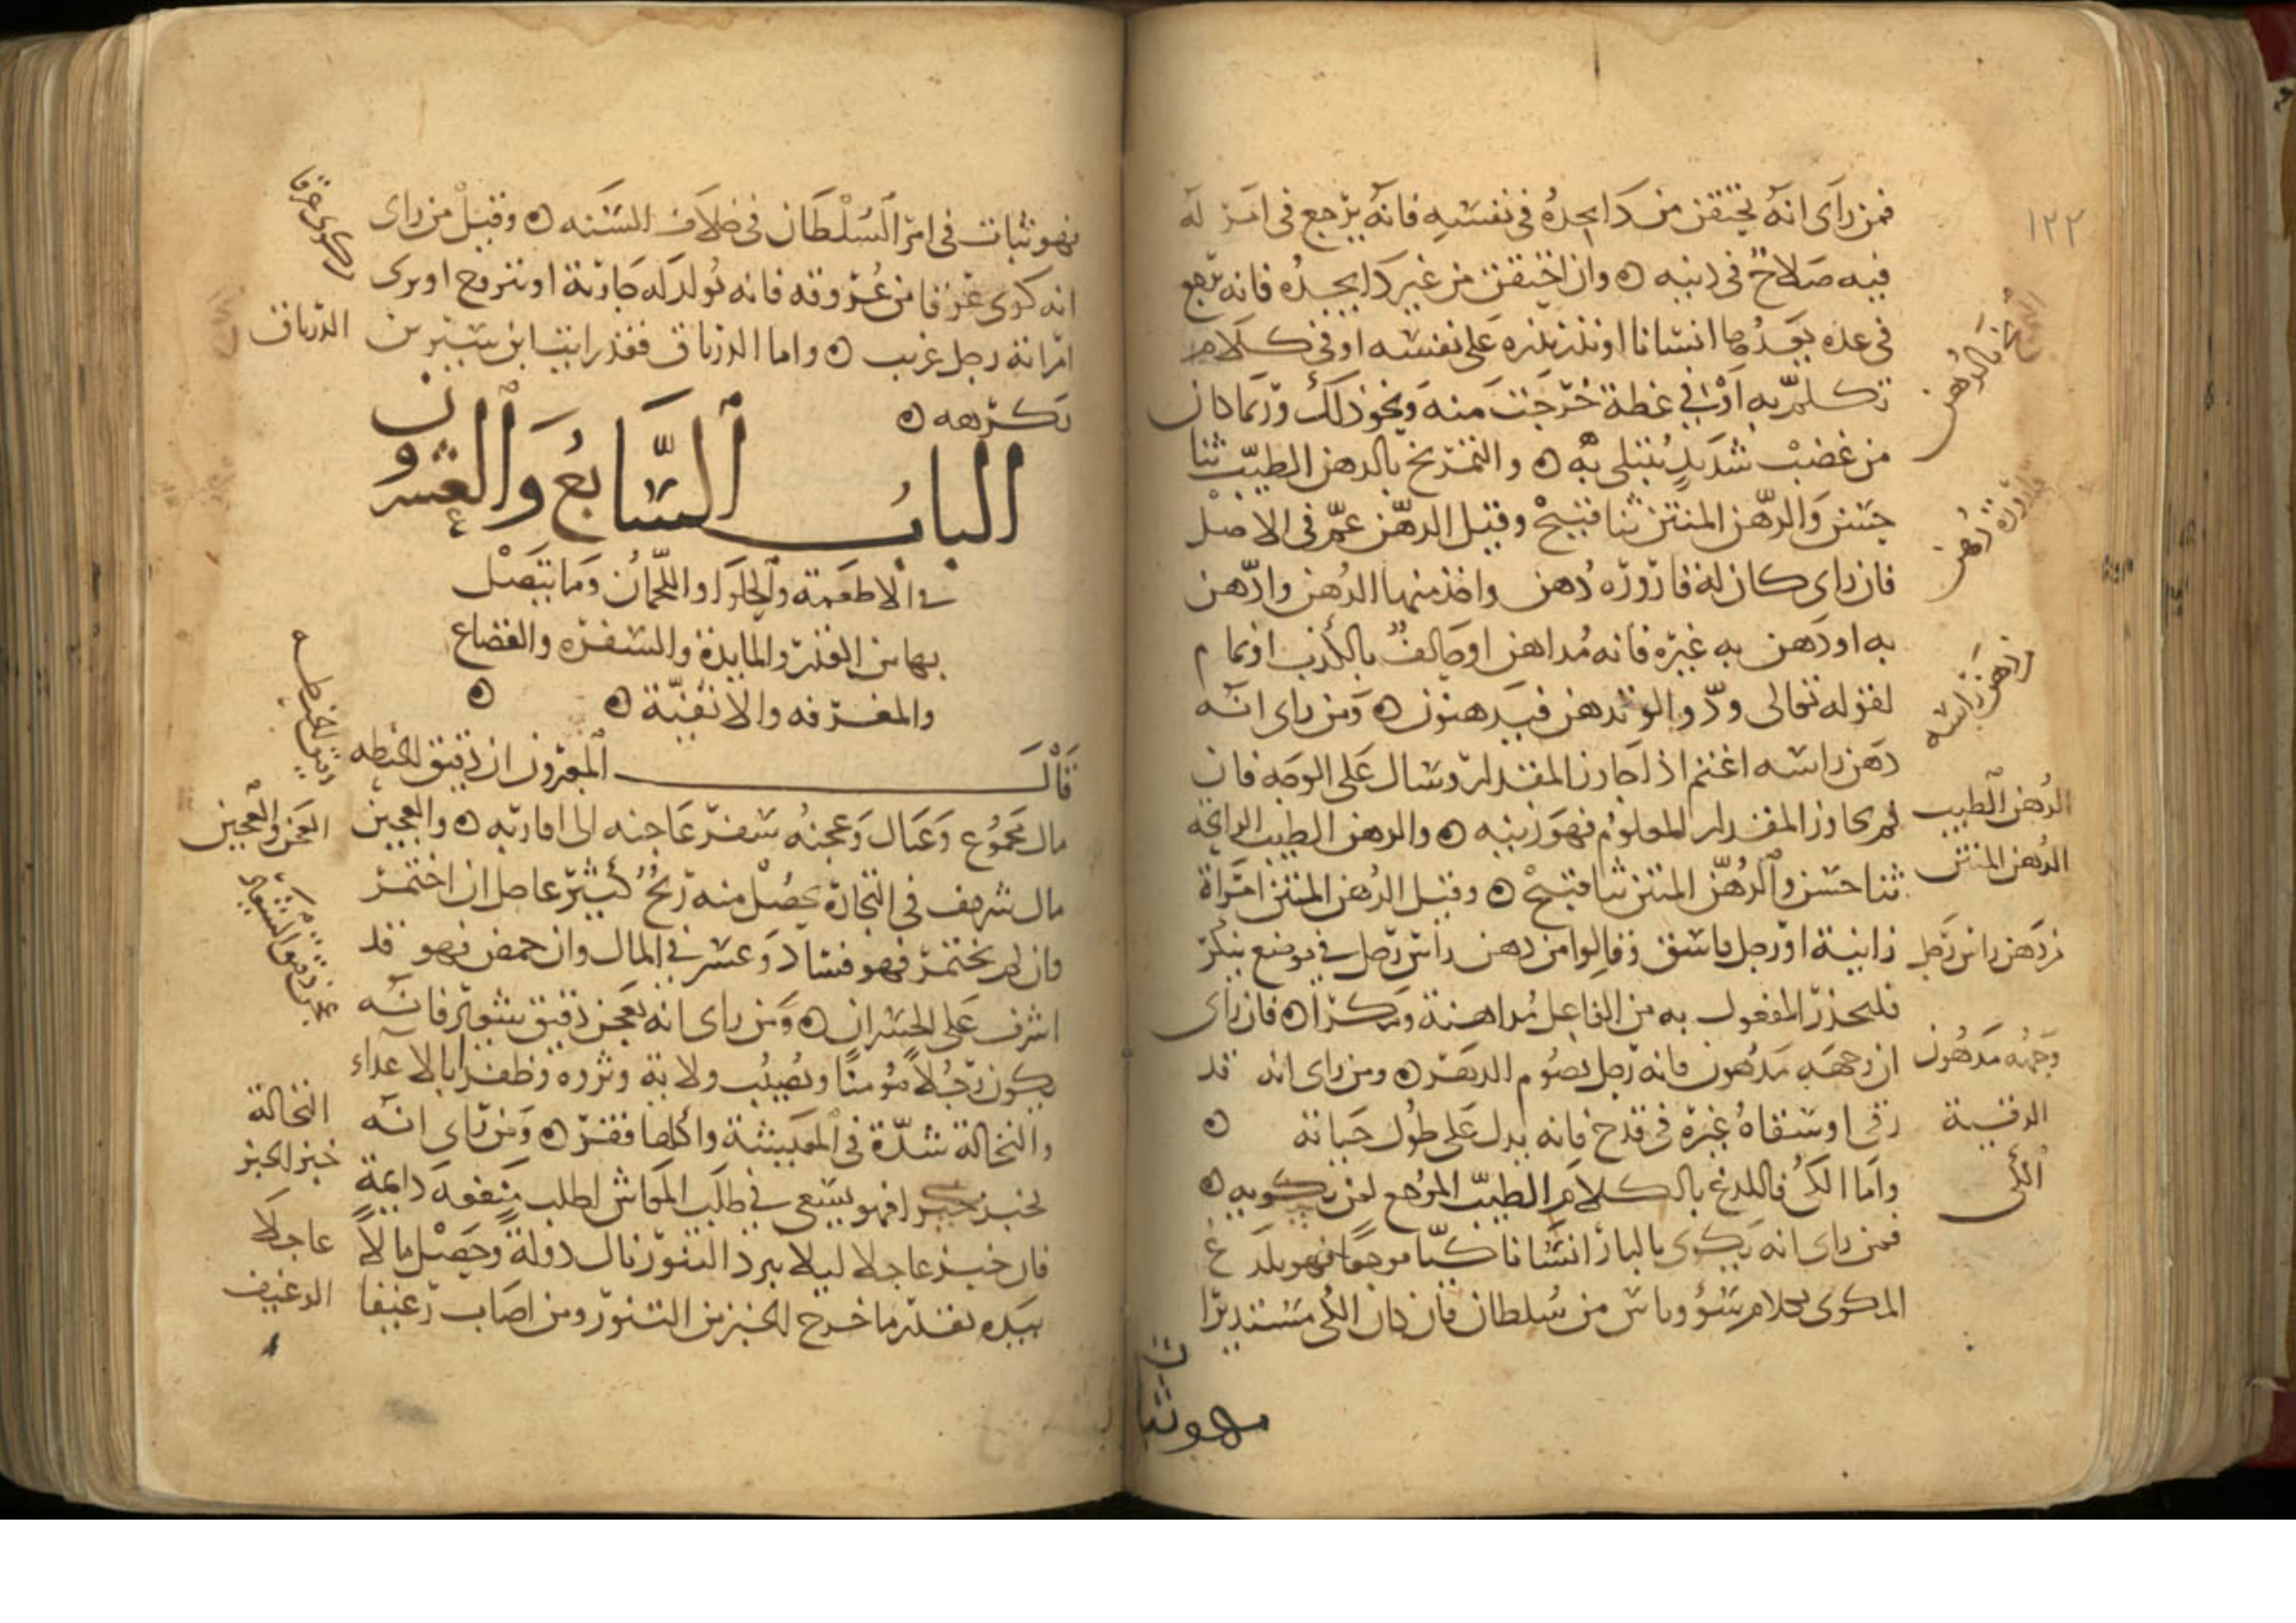 ١٢٢
فمن راى انه يحتقن من دا يجده فى نفسه فانه يرجع فى امر له
فيه صلاح فى دينه وان احتقن من غير دا يجده فانه يرجع
فى عده يعدها انسانا او نذر نذره على نفسه او فى كلام
تكلم به او فى غطة خرجت منه ونحو ذلك وربما كان
من غضب شديد يبتلى به والتمريخ بالدهن الطيب ثنا
حسن والدهن المنتن ثنا قبيح وقيل الدهن غم فى الاصل
فان راى كان له قارورة دهن واخذ منها الدهن وادهن
به او دهن به غيره فانه مداهن او حالف بالكذب او نمام
لقوله تعالى ودوا لو تدهن فيدهنون ومن راى انه
دهن راسه اغتم اذا جاوز المقدار وسال على الوجه فان
لم يجاوز المقدار المعلوم فهو زينه والدهن الطيب الرايحة
ثنا حسن والدهن المنتن ثنا قبيح وقيل الدهن المنتن امراة
زانية او رجل فاسق وقالوا من دهن راس رجل فى موضع ينكر
فليحذر المفعول به من الفاعل مداهنة ومكرا فان راى
ان وجهه مدهون فانه رجل يصوم الدهر ومن راى انه قد
رقى او سقاه غيره فى قدح فانه يدل على طول حياته
واما الكى فاللدغ بالكلام الطيب الموجع لمن يكويه
فمن راى انه يكوى بالنار انسانا كيا موجعا فهو يلدغ
المكوى بكلام سوء وباس من سلطان فان كان الكى مستديرا
فهو ثبات
التمريخ بالدهن
قارورة دهن
دهن راسه
الدهن الطيب
الدهن المنتن
من دهن راس رجل
وجهه مدهون
الرقية
الكى
فهو ثبات فى امر السلطان فى خلاف السنه وقيل من راى
انه كوى عرقا من عروقه فانه يولد له جارية او يتزوج او يرى
امراته رجل غريب واما الدرياق فقد رايت ابن سيرين
يكرهه
الباب السابع والعشرون
فى الاطعمة والحلوا واللحمان وما يتصل
بها من القدر والمايدة والسفره والقصاع
والمغرفه والاثفية
قال المعبرون ان دقيق الحنطه
مال مجموع وعيال وعجنه سفر عاجنه الى اقاربه والعجين
مال شريف فى التجارة يحصل منه ربح كثير عاجل ان اختمر
فان لم يختمر فهو فساد وعسر فى المال وان حمض فهو قد
اشرف على الخسران ومن راى انه يعجن دقيق شعير فانه
يكون رجلا مومنا ويصيب ولاية وثروه وظفرا بالاعداء
والنخالة شدة فى المعيشة واكلها فقر ومن راى انه
يخبز خبزا فهو يسعى فى طلب المعاش لطلب منفعه دايمة
فان خبز عاجلا ليلا يبرد التنور نال دولة وحصل مالا
بيده بقدر ما خرج الخبز من التنور ومن اصاب رغيفا
كوى عرقا
الدرياق
دقيق الحنطه
العجن والعجين
عجن دقيق الشعير
النخالة
خبز الخبز
عاجلا
الرغيف